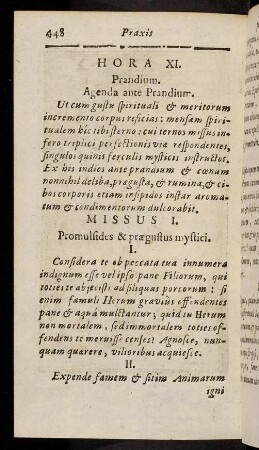 448 Praxis
HORA XI.
Prandium.
Agenda ante Prandium.
Ut cum gustu spirituali & meritorum
incremento corpus reficias: mensam spiri-
tualem hic tibi sterno: cui ternos missus in-
fero triplici perfectionis viæ respondentes,
singulos quinis ferculis mysticis instructos.
Ex his indies ante prandium & cœnam
nonnihil deliba, prægusta, & rumina, & ci-
bos corporis etiam insipidos instar aroma-
tum & condimentorum dulcorabit.
MISSUS I.
Promulsides & prægustus mystici.
I.
Considera te ob peccata tua innumera
indignum esse vel ipso pane Filiorum, qui
toties te abjecisti ad siliquas porcorum: si
enim famuli Herum gravius offendentes
pane & aquâ mulctantur; quid tu Herum
non mortalem, sed immortalem toties of-
fendens te meruisse censes? Agnosce, nun-
quam quærere, vilioribus acquiesce.
II.
Expende famem & sitim Animarum
igni